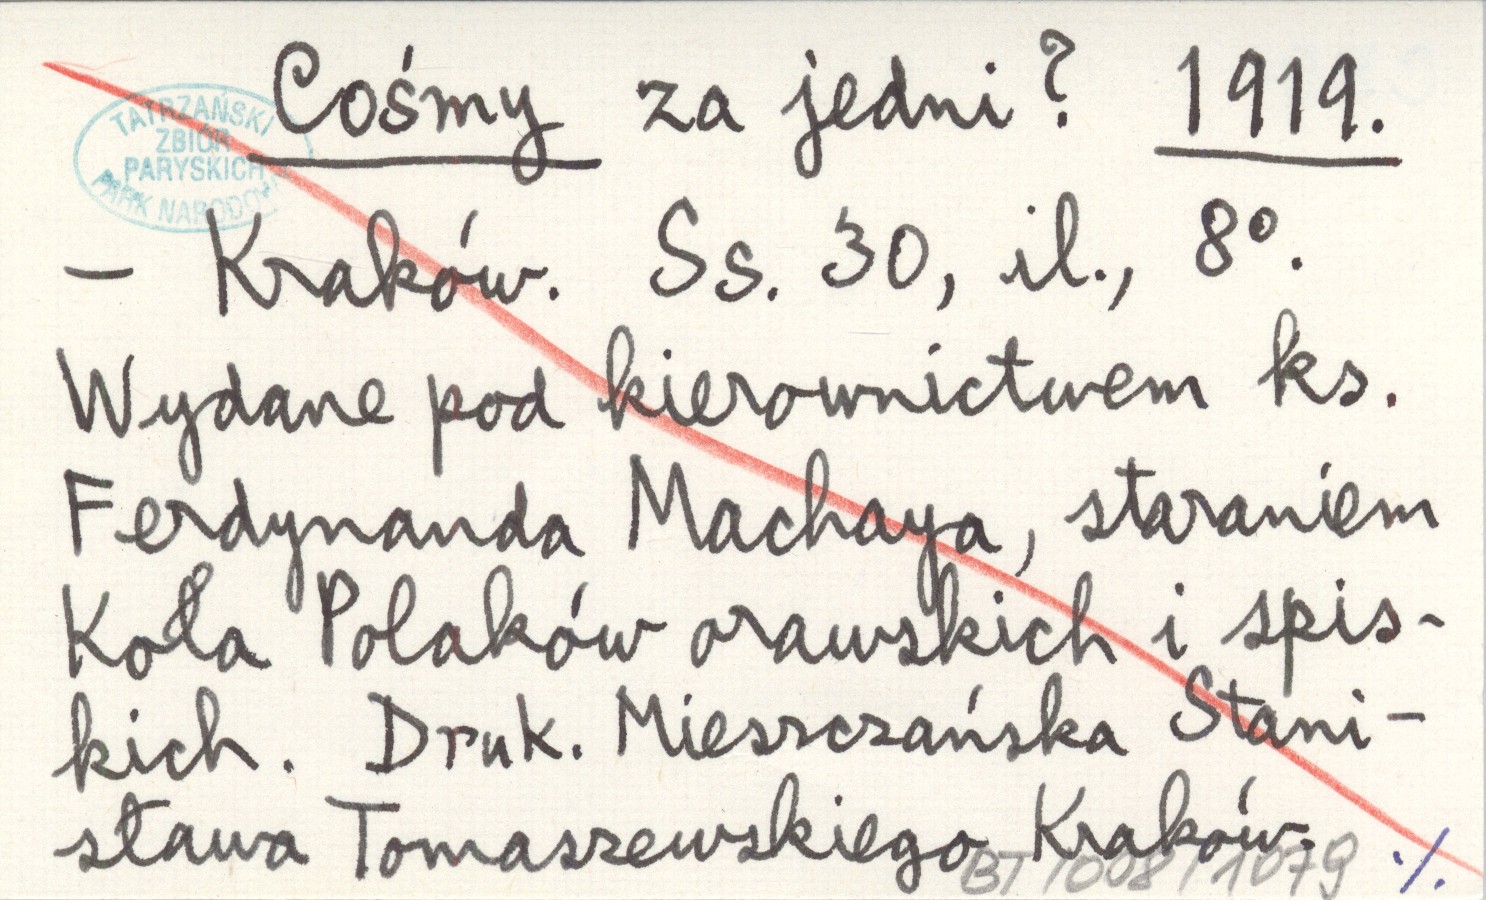 Cośmy za jedni? 1919.
TATRZAŃSKI
ZBIÓR
PARYSKICH
PARK NARODOWY
– Kraków. Ss. 30, il., 8º.
Wydane pod kierownictwem ks.
Ferdynanda Machaya, staraniem
Koła Polaków orawskich i spis-
kich. Druk. Mieszczańska Stani-
sława Tomaszewskiego Kraków.
BT/008/1079 ./.